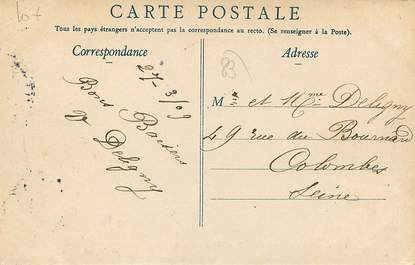 lot
CARTE POSTALE
Tous les pays étrangers n'acceptent pas la correspondance au recto. (Se renseigner à la Poste).
Correspondance
Adresse
83
27-3/09
Bons Baisers
Deligny
Mr et Mme Deligny
49 rue du Bournard
Colombes
Seine